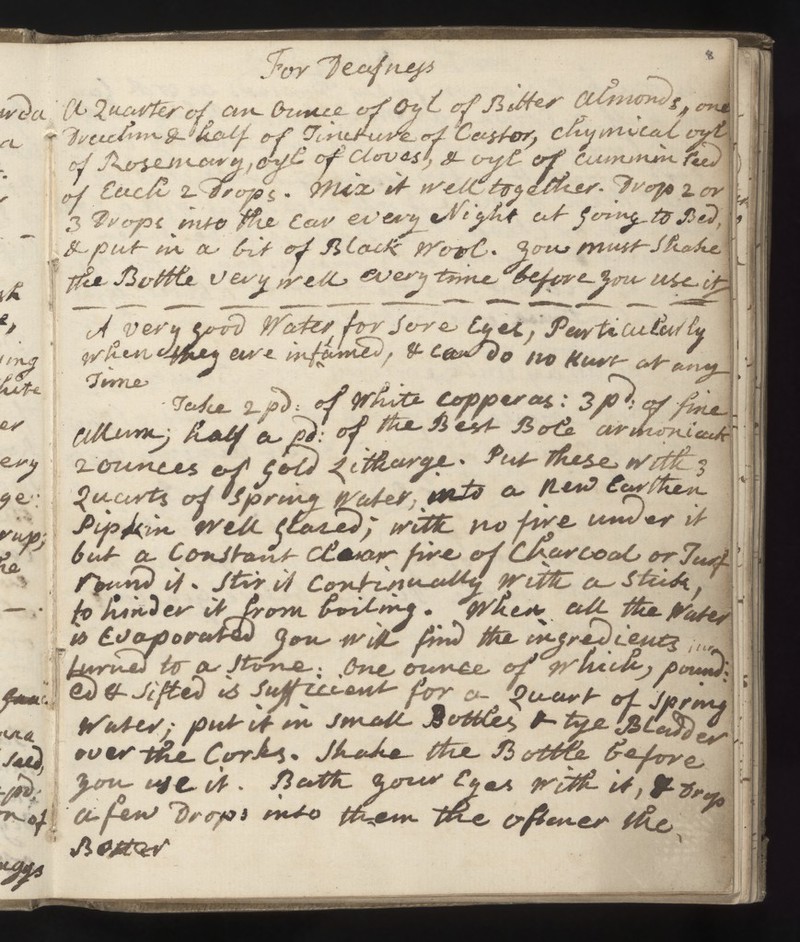 8
For Deafness
A Quarter of an Ounce of Oyl of Bitter Almonds, one
Drachm & half of Tincture of Castor, Chymical oyl
of Rosemary, oyl of Cloves, & oyl of Cummin seed
of Each 2 Drops. Mix it well together. Drop 2 or
3 Drops into the ear every Night at going to Bed,
& put in a bit of Black Wool. you must shake
the Bottle very well every time before you use it
A very good Water for Sore Eyes, Particularly
when they are inflamed, & can do no Hurt at any
Time
Take 2 pd: of White Copperas: 3 pd: of fine
Allum; half a pd: of the Best Bole armoniack
2 ounces of Gold Litharge. Put these with 3
Quarts of Spring Water, into a New Earthen
Pipkin well Glazed; with no fire under it
but a Constant Clear fire of Charcoal or Turf
round it. Stir it Continually with a Stick,
to hinder it from boiling. When all the Water
is Evaporated you will find the ingredients
turned to a Stone. One ounce of which, pound:
ed & sifted is Sufficient for a Quart of Spring
Water; put it in small Bottles & tye Bladder
over the Corks. Shake the Bottle before
you use it. Bath your Eyes with it, & Drop
a few Drops into them the oftener the
Better